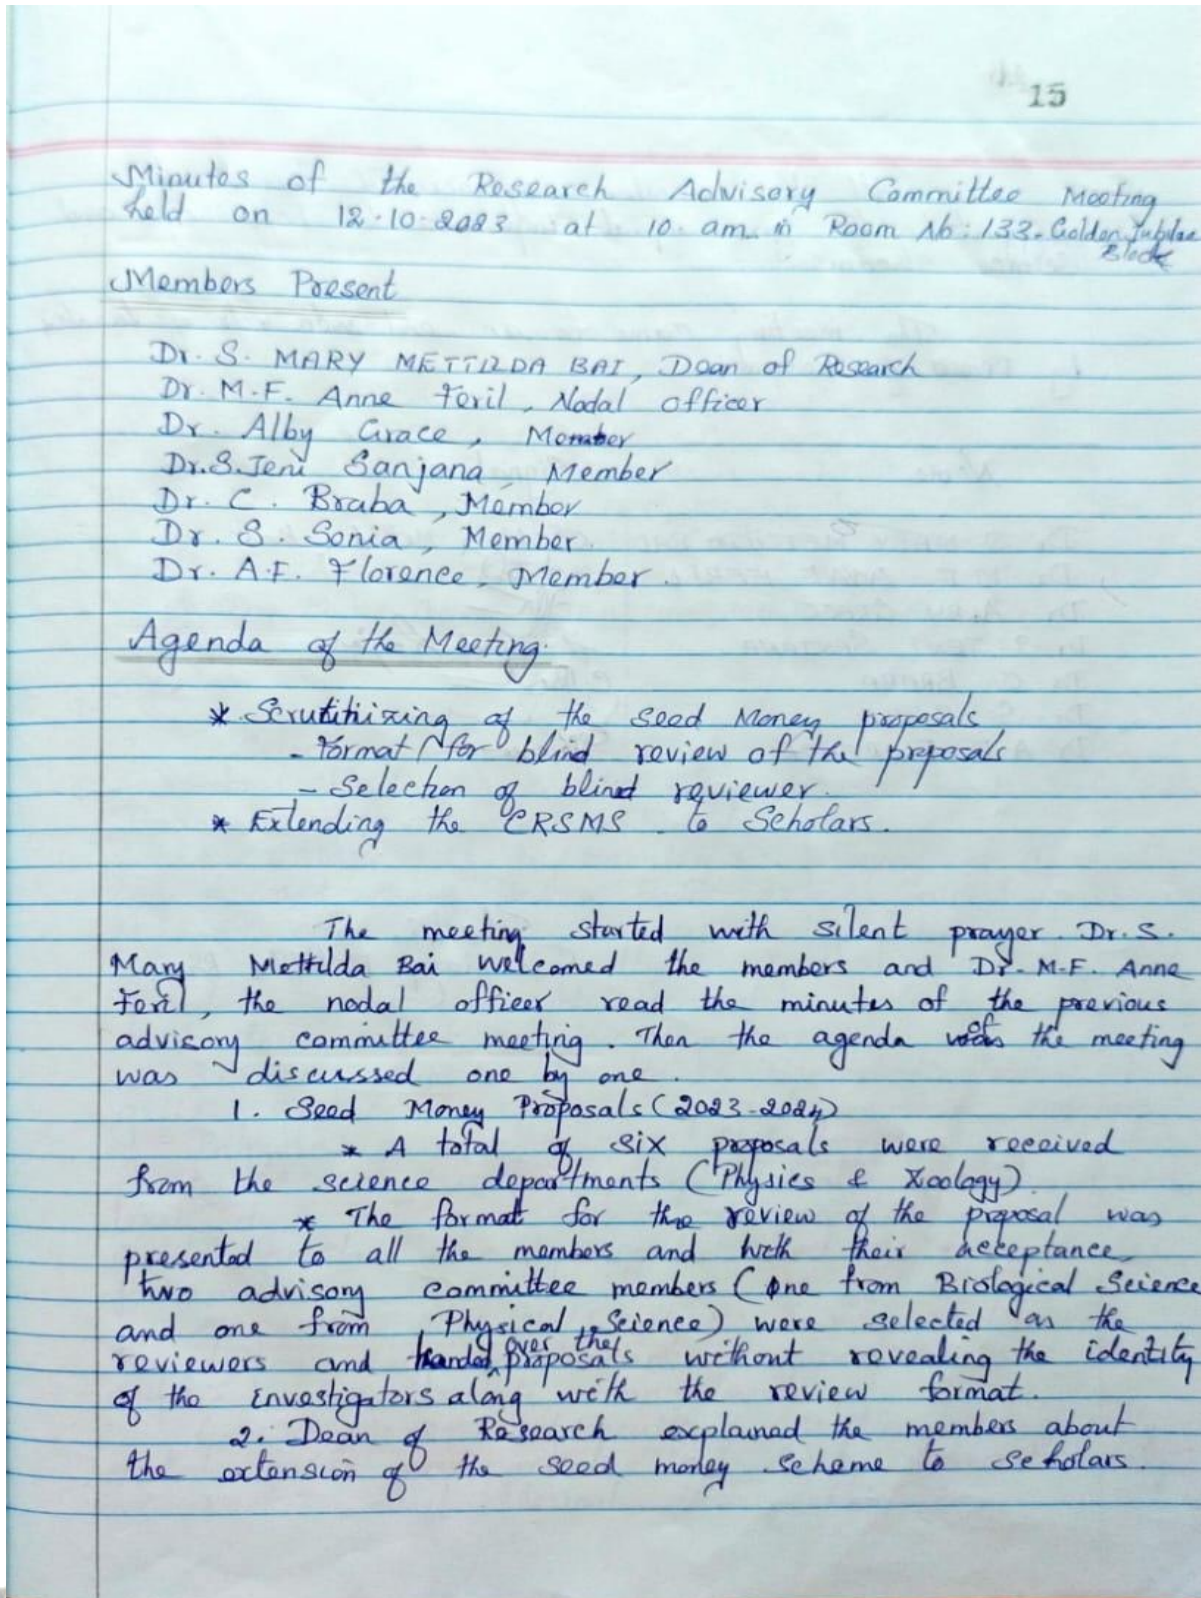 15
Minutes of the Research Advisory Committee Meeting
held on 12.10.2023 at 10 am in Room No: 133. Golden Jubilee
Block
Members Present
Dr. S. MARY METTILDA BAI, Dean of Research
Dr. M.F. Anne Feril, Nodal officer
Dr. Alby Grace, Member
Dr. S. Jeni Sanjana, Member
Dr. C. Braba, Member
Dr. S. Sonia, Member.
Dr. A.F. Florence, Member.
Agenda of the Meeting.
* Scrutinizing of the seed Money proposals
- Format for blind review of the proposals
- Selection of blind reviewer.
* Extending the CRSMS to Scholars.
The meeting started with silent prayer. Dr. S.
Mary Mettilda Bai welcomed the members and Dr. M.F. Anne
Feril, the nodal officer read the minutes of the previous
advisory committee meeting. Then the agenda of the meeting
was discussed one by one.
1. Seed Money Proposals (2023-2024)
* A total of six proposals were received
from the science departments (Physics & Zoology)
* The format for the review of the proposal was
presented to all the members and with their acceptance
two advisory committee members (One from Biological Science
and one from Physical Science) were selected as the
reviewers and handed over the proposals without revealing the identity
of the investigators along with the review format.
2. Dean of Research explained the members about
the extension of the seed money scheme to scholars.